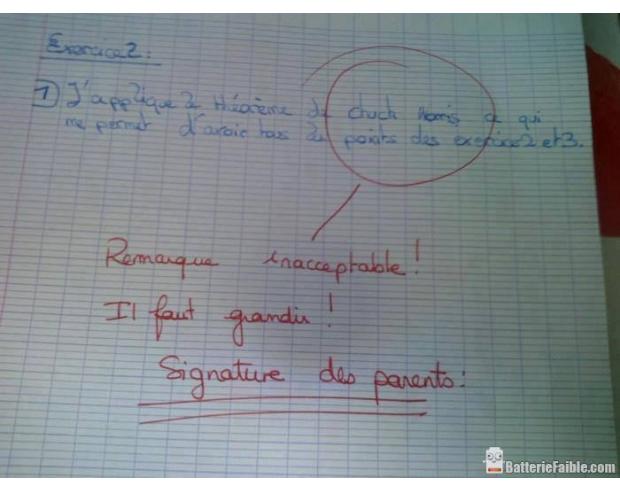 Exercice 2:
1) J'applique le théorème de chuck Norris ce qui
me permet d'avoir tous les points des exercice 2 et 3.
Remarque inacceptable!
Il faut grandir!
Signature des parents:
BatterieFaible.com